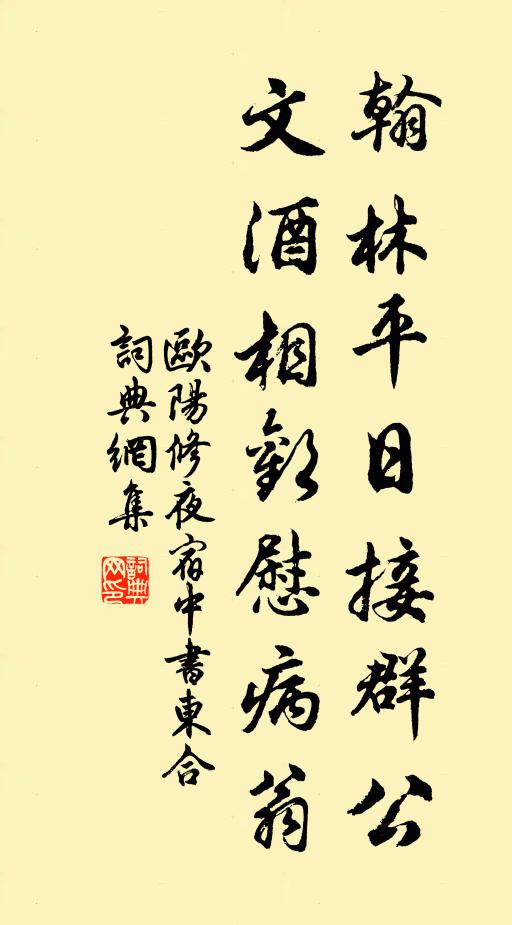 翰林平日接群公
文酒相歡慰病翁
歐陽修夜宿中書東合
詞典網集
詞典网印